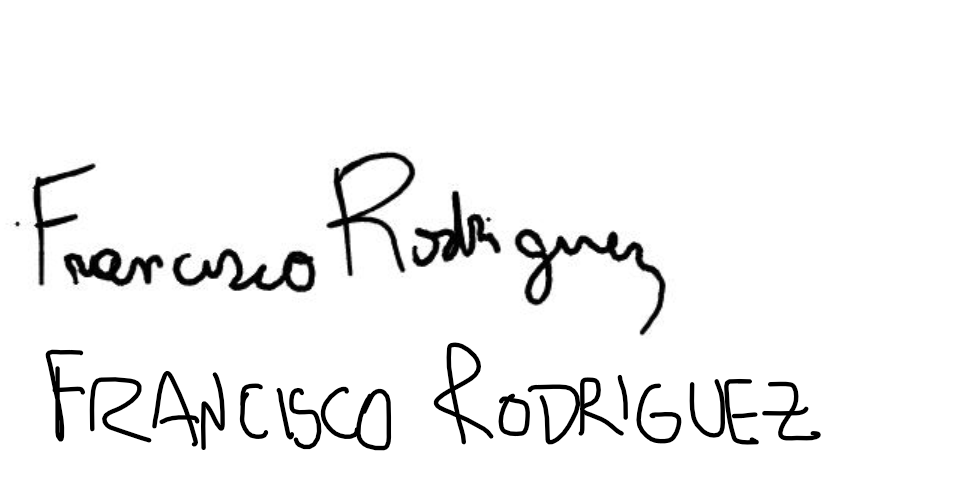 Francisco Rodriguez
FRANCISCO RODRIGUEZ